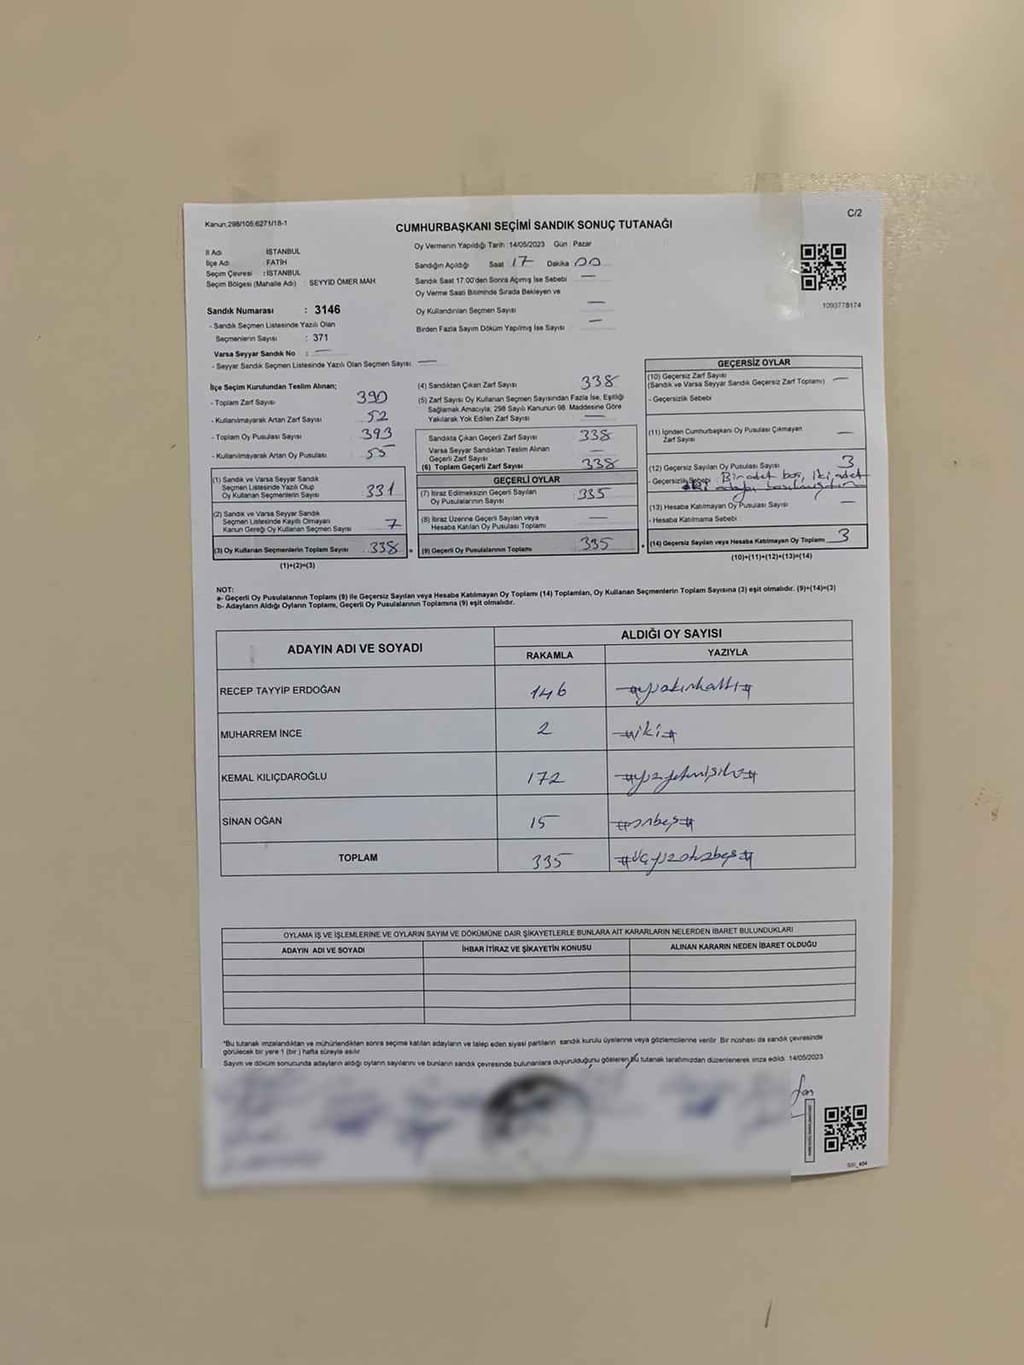 Kanun:298/105;6271/18-1
C/2
CUMHURBAŞKANI SEÇİMİ SANDIK SONUÇ TUTANAĞI
İl Adı : İSTANBUL
İlçe Adı : FATİH
Seçim Çevresi : İSTANBUL
Seçim Bölgesi (Mahalle Adı) SEYYİD ÖMER MAH
Oy Vermenin Yapıldığı Tarih : 14/05/2023 Gün : Pazar
Sandığın Açıldığı Saat 17 Dakika 00
Sandık Saat 17:00'den Sonra Açılmış İse Sebebi —
Oy Verme Saati Bitiminde Sırada Bekleyen ve
Oy Kullandırılan Seçmen Sayısı —
Birden Fazla Sayım Döküm Yapılmış İse Sayısı —
1093778174
Sandık Numarası : 3146
- Sandık Seçmen Listesinde Yazılı Olan
Seçmenlerin Sayısı : 371
Varsa Seyyar Sandık No : —
- Seyyar Sandık Seçmen Listesinde Yazılı Olan Seçmen Sayısı : —
İlçe Seçim Kurulundan Teslim Alınan;
- Toplam Zarf Sayısı 390
- Kullanılmayarak Artan Zarf Sayısı 52
- Toplam Oy Pusulası Sayısı 393
- Kullanılmayarak Artan Oy Pusulası 55
(1) Sandık ve Varsa Seyyar Sandık
Seçmen Listesinde Yazılı Olup
Oy Kullanan Seçmenlerin Sayısı 331
(2) Sandık ve Varsa Seyyar Sandık
Seçmen Listesinde Kayıtlı Olmayan
Kanun Gereği Oy Kullanan Seçmen Sayısı 7
(3) Oy Kullanan Seçmenlerin Toplam Sayısı 338
(1)+(2)=(3)
(4) Sandıktan Çıkan Zarf Sayısı 338
(5) Zarf Sayısı Oy Kullanan Seçmen Sayısından Fazla İse, Eşitliği
Sağlamak Amacıyla; 298 Sayılı Kanunun 98. Maddesine Göre
Yakılarak Yok Edilen Zarf Sayısı —
Sandıkta Çıkan Geçerli Zarf Sayısı 338
Varsa Seyyar Sandıktan Teslim Alınan
Geçerli Zarf Sayısı —
(6) Toplam Geçerli Zarf Sayısı 338
GEÇERLİ OYLAR
(7) İtiraz Edilmeksizin Geçerli Sayılan
Oy Pusulalarının Sayısı 335
(8) İtiraz Üzerine Geçerli Sayılan veya
Hesaba Katılan Oy Pusulası Toplamı —
(9) Geçerli Oy Pusulalarının Toplamı 335
GEÇERSİZ OYLAR
(10) Geçersiz Zarf Sayısı
(Sandık ve Varsa Seyyar Sandık Geçersiz Zarf Toplamı) —
- Geçersizlik Sebebi
(11) İçinden Cumhurbaşkanı Oy Pusulası Çıkmayan
Zarf Sayısı —
(12) Geçersiz Sayılan Oy Pusulası Sayısı 3
- Geçersizlik Sebebi Bir adet boş, iki adet
(13) Hesaba Katılmayan Oy Pusulası Sayısı —
- Hesaba Katılmama Sebebi
(14) Geçersiz Sayılan veya Hesaba Katılmayan Oy Toplamı 3
(10)+(11)+(12)+(13)=(14)
NOT:
a- Geçerli Oy Pusulalarının Toplamı (9) ile Geçersiz Sayılan veya Hesaba Katılmayan Oy Toplamı (14) Toplamları, Oy Kullanan Seçmenlerin Toplam Sayısına (3) eşit olmalıdır. (9)+(14)=(3)
b- Adayların Aldığı Oyların Toplamı, Geçerli Oy Pusulalarının Toplamına (9) eşit olmalıdır.
ADAYIN ADI VE SOYADI
ALDIĞI OY SAYISI
RAKAMLA YAZIYLA
RECEP TAYYİP ERDOĞAN 146 #yüzkırkaltı#
MUHARREM İNCE 2 #iki#
KEMAL KILIÇDAROĞLU 172 #yüzyetmişiki#
SİNAN OĞAN 15 #onbeş#
TOPLAM 335 #üçyüzotuzbeş#
OYLAMA İŞ VE İŞLEMLERİNE VE OYLARIN SAYIM VE DÖKÜMÜNE DAİR ŞİKAYETLERLE BUNLARA AİT KARARLARIN NELERDEN İBARET BULUNDUKLARI
ADAYIN ADI VE SOYADI İHBAR İTİRAZ VE ŞİKAYETİN KONUSU ALINAN KARARIN NEDEN İBARET OLDUĞU
*Bu tutanak imzalandıktan ve mühürlendikten sonra seçime katılan adayların ve talep eden siyasi partilerin sandık kurulu üyelerine veya gözlemcilerine verilir. Bir nüshası da sandık çevresinde
görülecek bir yere 1 (bir) hafta süreyle asılır.
Sayım ve döküm sonucunda adayların aldığı oyların sayılarını ve bunların sandık çevresinde bulunanlara duyurulduğunu gösteren bu tutanak tarafımızdan düzenlenerek imza edildi. 14/05/2023